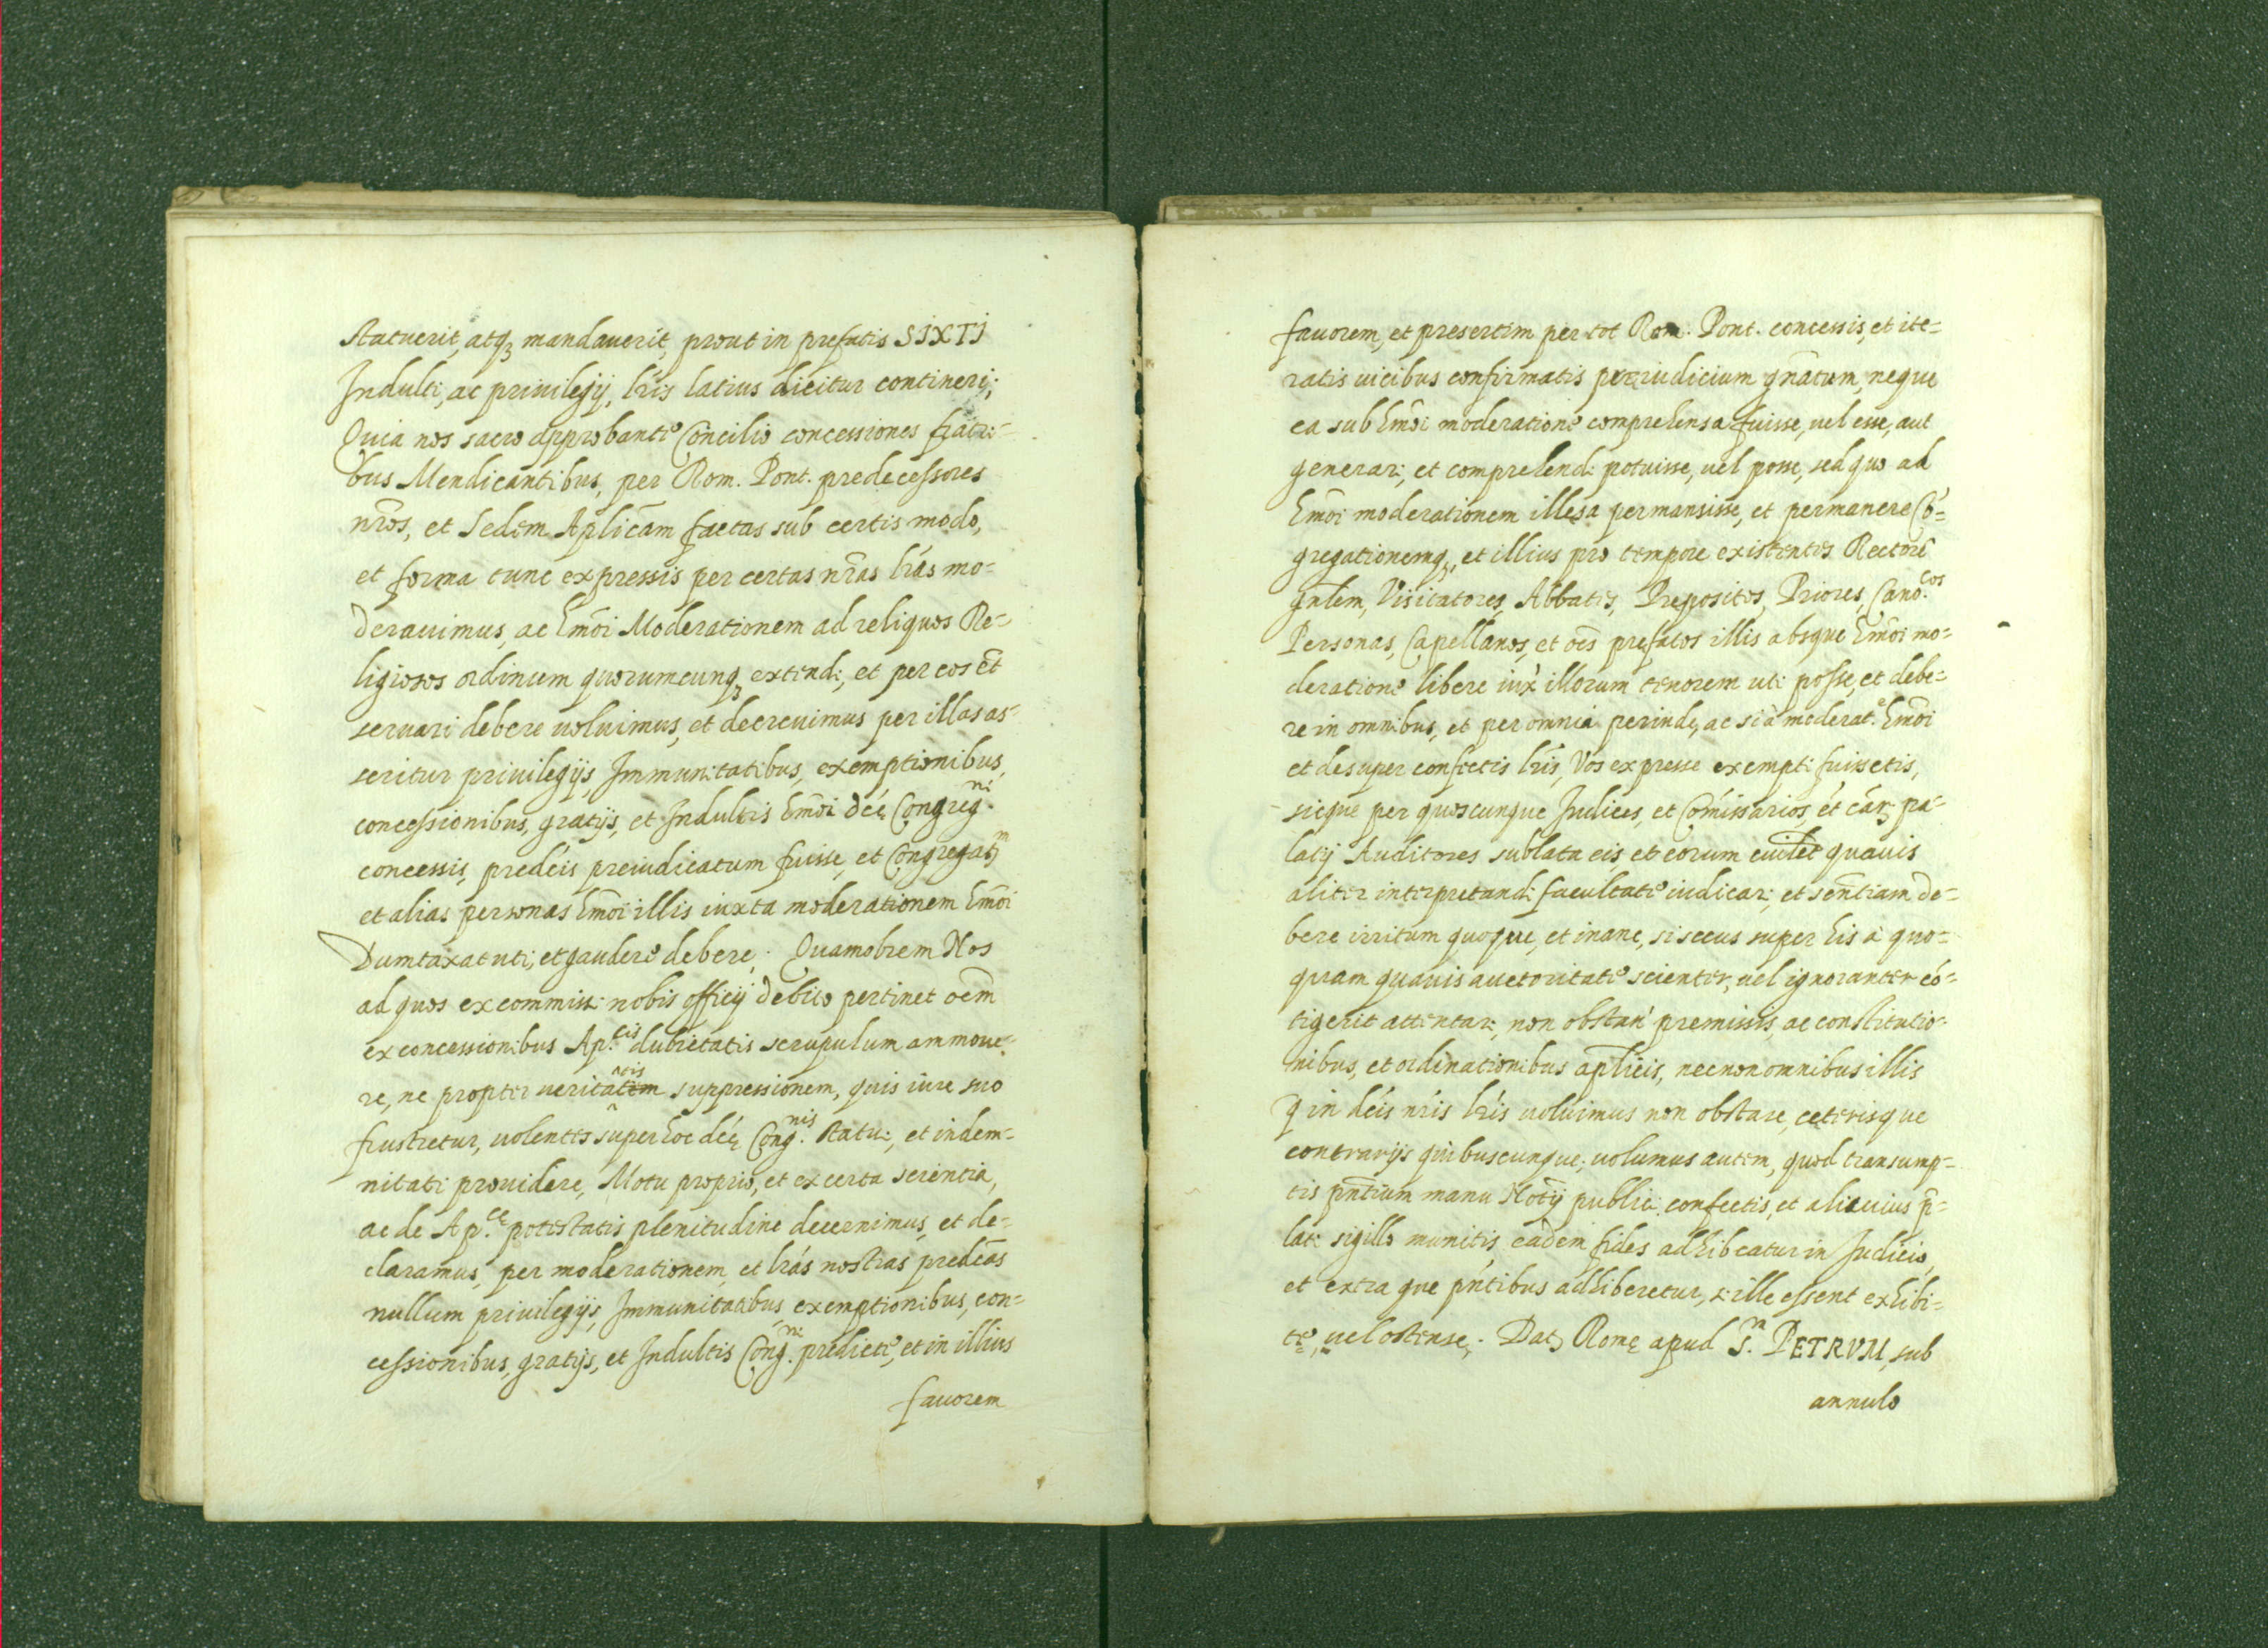 statuerit, atqʒ mandauerit, prout in prefatis SIXTI
Indulti, ac priuilegij, lr̃is latius dicitur contineri;
Quia nos sacro approbante Concilio concessiones fratri-
bus Mendicantibus, per Rom. Pont. predecessores
nr̃os, et Sedem Aplicãm factas sub certis modo,
et forma tunc expressis per certas nr̃as lr̃as mo-
derauimus, ac hmõi Moderationem ad reliquos Re-
ligiosos ordinum quorumcunqʒ extendi, et per eos ẽt
seruari debere uoluimus, et decreuimus per illas as-
seritur priuilegijs, Immunitatibus, exemptionibus,
concessionibus, gratijs, et Indultis hmõi dcẽ Congreg.ni
concessis, predcĩs preiudicatum fuisse, et Congregat.m
et alias personas hmõi illis iuxta moderationem hmõi
Dumtaxat uti, et gaudere debere. Quamobrem Nos
ad quos ex commissi nobis officij debito pertinet oẽm
ex concessionibus Ap.cis dubietatis scrupulum ammoue-
re, ne propter ueritatem atis suppressionem, quis iure suo
frustretur, uolentes super hoc dcę̃ Cong.nis statui, et indem-
nitati prouidere, Motu proprio, et ex certa scientia,
ac de Ap.cę potestatis plenitudine decernimus, et de-
claramus, per moderationem, et lr̃as nostras predcãs
nullum priuilegijs, Immunitatibus, exemptionibus, con-
cessionibus, gratijs, et Indultis Cong.ni predicte, et in illius
fauorem
fauorem, et presertim per tot Rom. Pont. concessis, et ite-
ratis uicibus confirmatis preiudicium gñatum, neque
ea sub hmõi moderatione comprehensa fuisse, uel esse, aut
generari, et comprehendi potuisse, uel posse, sed quo ad
hmõi moderationem illesa permansisse, et permanere Cõ-
gregationemqʒ, et illius pro tempore existentes Rectorẽ
gñlem, Visitatores, Abbates, Prepositos, Priores, Cano.cos
Personas, Capellanos, et oẽs prefatos illis absque hmõi mo-
deratione libere iux̃ illorum tenorem uti posse, et debe-
re in omnibus, et per omnia perinde, ac si à moderat.e hmõi
et desuper confectis lr̃is, Vos expresse exempti fuissetis,
sicque per quoscunque Iudices, et Cõmissarios, ẽt cãrʒ pa-
latij Auditores sublata eis et eorum cuilet quauis
aliter interpretandi facultate iudicari, et sentẽtiam de-
bere irritum quoque, et inane, si secus super his à quo-
quam quauis auctoritate scienter, uel ignoranter cõ-
tigerit attentari, non obstañ premissis, ac constitutio-
nibus, et ordinationibus aplĩcis, necnon omnibus illis
q̃ in dcĩs nr̃is lr̃is uoluimus non obstare, ceterisque
contrarijs quibuscunque; uolumus autem, quod transump-
tis pñtium manu Notĩj publici confectis, et alicuius p̃-
lati sigillo munitis, eadem fides adhibeatur in Iudicio,
et extra que pñtibus adhiberetur, si ille essent exhibi-
te, uel ostense. Datʒ Romę apud S.m PETRVM, sub
annulo